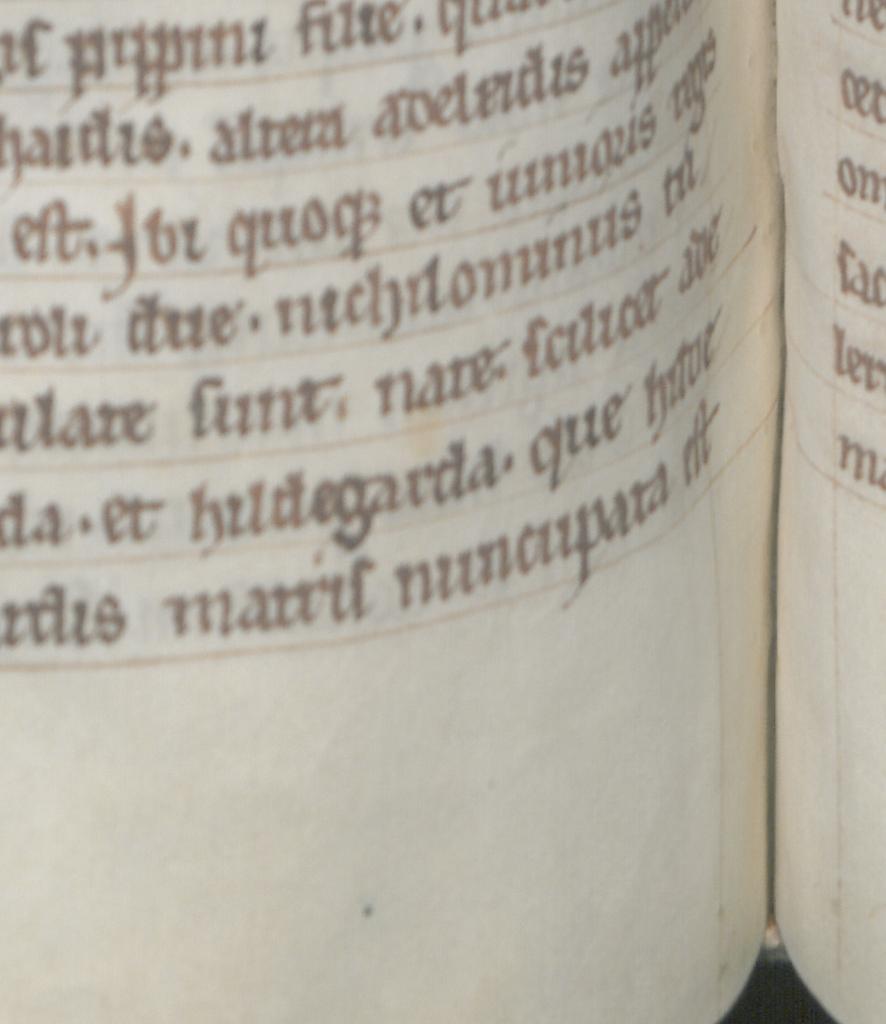 pippini filie. qua
haidis. altera adeleidis appel
est. Ibi quoqꝫ et iunioris regis
roli due. nichilominus tn̄
ulate sunt. nate. scilicet ade
da. et hildegarda. que huıꝰ
ardis matris nuncupata est
ler
ma